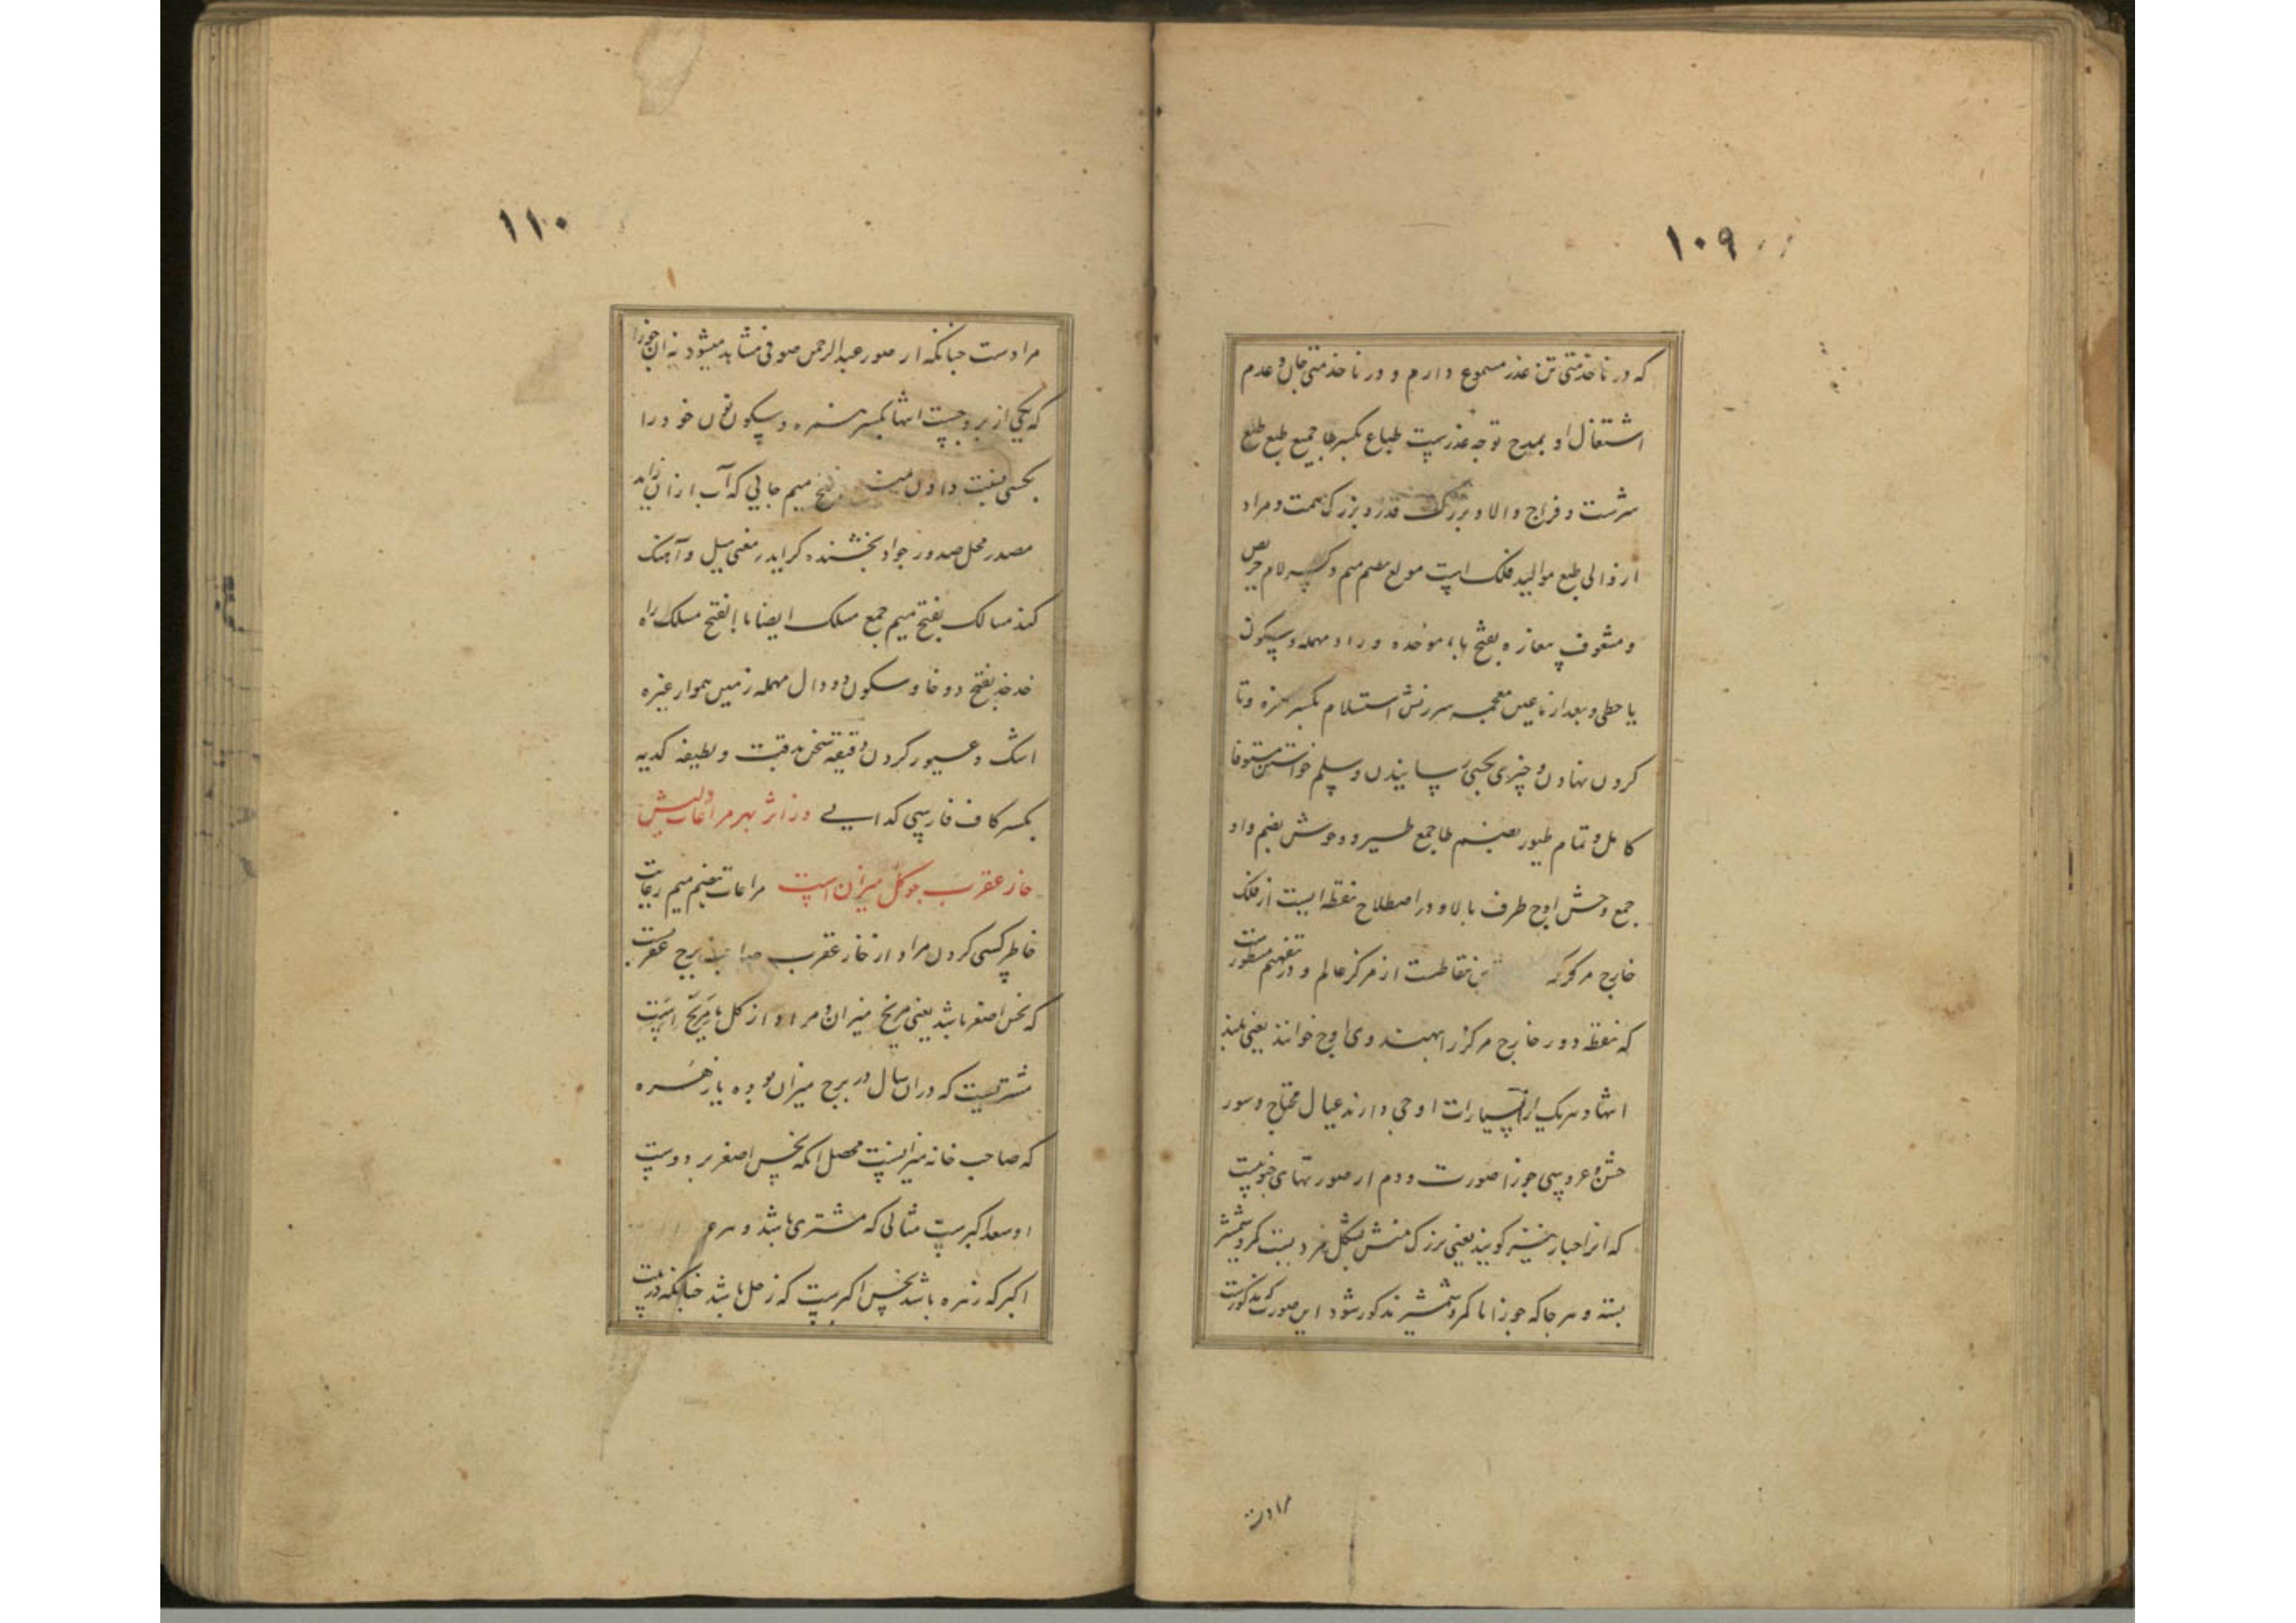 ۱۰۹
که در ناخدمتی تن عذر مسموع دارم و در ناخدمتی جان و عدم
اشتغال او بمدح توجه عذرست طباع بکسر طا جمیع طبع طلع
سرشت و مزاج والا و بزرک قدر و بزرک همت و مراد
از والی طبع موالید فلک است مولع بضم میم و کسر لام حریص
و مشعوف بفتح باء موحده و راء مهمله و سکون
یا حطی و بعد از غین معجمه سرزنش استلام بکسر همزه و تا
کردن نهادن و چیزی بحبی رسانیدن و سلم خواستن مستوفا
کامل و تمام طیور بضم طا جمع طیر و وحوش بضم واو
جمع وحش اوج طرف بالا و در اصطلاح نقطه ایست از فلک
خارج مرکز که نقاطست از مرکز عالم و در تفهیم مسطورست
که نقطه دور خارج مرکز را بهندوی اوج خوانند یعنی بلند
انها و هریک ازین سیارات اوجی دارند عیال محتاج و سور
جشن و عروسی جوزا صورت دوم از صورتهای جنوبیست
که انرا جبار نیز گویند یعنی بزرک منش بشکل مرد بست کمر و شمشیر
بسته و هر جا که جوزا با کمر و شمشیر مذکور شود این صورت که مذکورست
مرادست
۱۱۰
مرادست چنانکه از صور عبدالرحمن صوفی مشاهد میشود نه ان جوزا
که یکی از بروجست انتها بکسر همزه و سکون نون خود را
بکسی نسبت دادن بفتح میم جایی که آب ازان زاید
مصدر محل صدور جواد بخشنده کراید یعنی میل و آهنک
کند مسالک بفتح میم جمع مسلک ایضا با بفتح مسلک راه
خدخد بفتح دو خا و سکون دو دال مهمله زمین هموار غیره
اشک و عبور کردن دقیقه سخن بدقت و لطیفه کدیه
بکسر کاف فارسی کدایی در اثر بهر مراعات ولیش
خار عقرب چو کل میزان است مراعات بضم میم رعایت
خاطر کسی کردن مراد از خار عقرب صاحب برج عقربست
که نحس اصغر باشد یعنی مریخ میزان و مراد از کل
مشتریست که دران سال در برج میزان بوده یا زهره
که صاحب خانه میزانست محصل انکه نحس اصغر بر دوست
او سعد اکبرست مثالی که مشتری باشد و سر
اکبر که زهره باشد نحس اکبرست که زحل باشد چنانکه در بیت